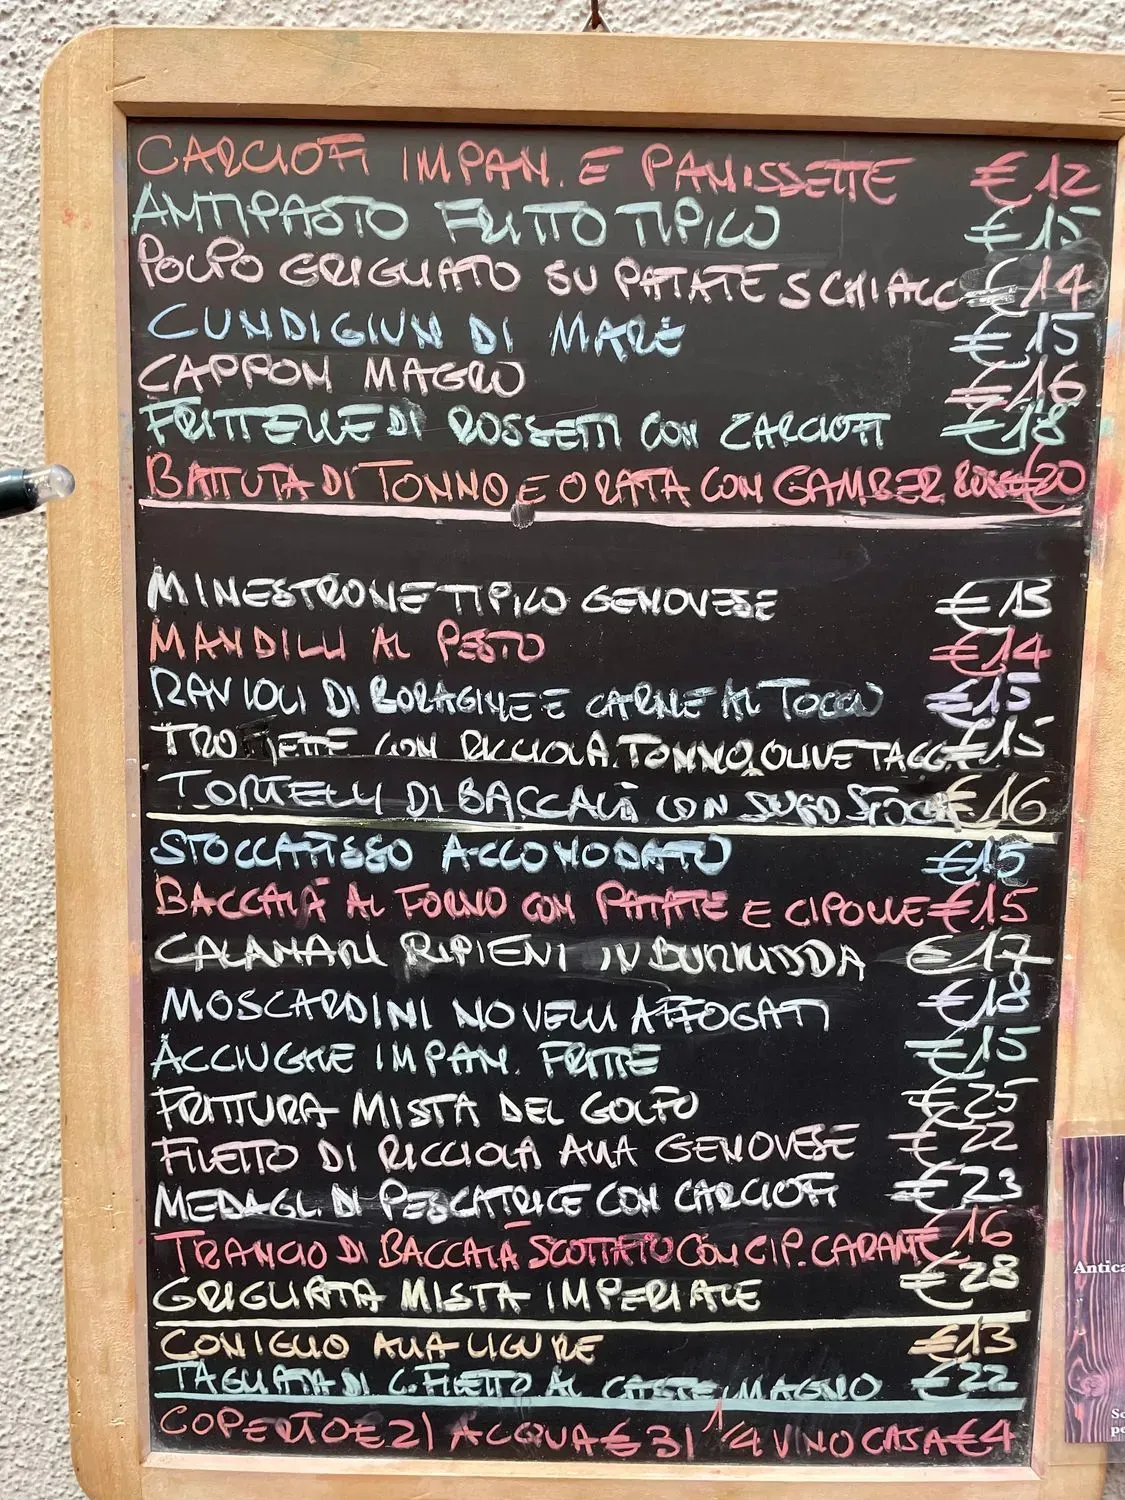 CARCIOFI IMPAN. E PANISSETTE €12
ANTIPASTO FRITTO TIPICO €15
POLPO GRIGLIATO SU PATATE SCHIACC €14
CUNDIGIUN DI MARE €15
CAPPON MAGRO €16
FRITTELLE DI ROSSETTI CON CARCIOFI €18
BATTUTA DI TONNO E ORATA CON GAMBER. ROSSI €20
MINESTRONE TIPICO GENOVESE €13
MANDILLI AL PESTO €14
RAVIOLI DI BORAGINE E CARNE AL TOCCO €15
TROFIETTE CON RICCIOLA, TONNO, OLIVE TAGG. €15
TORTELLI DI BACCALÀ CON SUGO STOCC €16
STOCCAFISSO ACCOMODATO €15
BACCALÀ AL FORNO CON PATATE E CIPOLLE €15
CALAMARI RIPIENI IN BURRIDDA €17
MOSCARDINI NOVELLI AFFOGATI €18
ACCIUGHE IMPAN. FRITTE €15
FRITTURA MISTA DEL GOLFO €25
FILETTO DI RICCIOLA ALLA GENOVESE €22
MEDAGL. DI PESCATRICE CON CARCIOFI €23
TRANCIO DI BACCALÀ SCOTTATO CON CIP. CARAME €16
GRIGLIATA MISTA IMPERIALE €28
CONIGLIO ALLA LIGURE €13
TAGLIATA DI C. FILETTO AL CASTELMAGNO €22
COPERTO €2 | ACQUA €3 | 1/4 VINO CASA €4
Antica